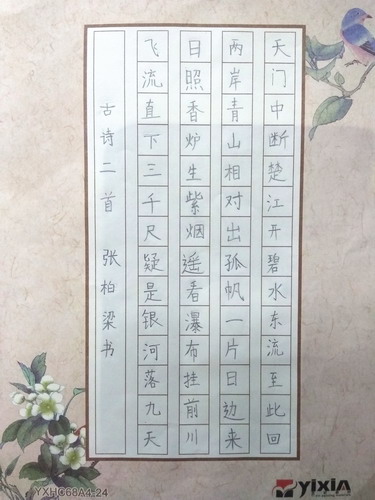 天门中断楚江开碧水东流至此回
两岸青山相对出孤帆一片日边来
日照香炉生紫烟遥看瀑布挂前川
飞流直下三千尺疑是银河落九天
古诗二首 张柏梁书
YXHC68A4-24
yixiA